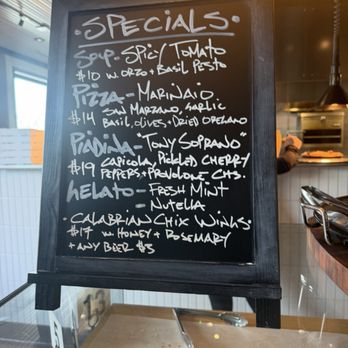 ·SPECIALS·
Soup - Spicy Tomato
$10 w. Orzo + Basil Pesto
Pizza - Marinaio
San Marzano, Garlic
$14 Basil, Olives + Dried Oregano
Piadina - "Tony Soprano"
$19 Capicola, Pickled Cherry
Peppers + Provolone Chs.
Gelato - Fresh Mint
- Nutella
· Calabrian Chix Wings
$17 w. Honey + Rosemary
+ Any Beer $5